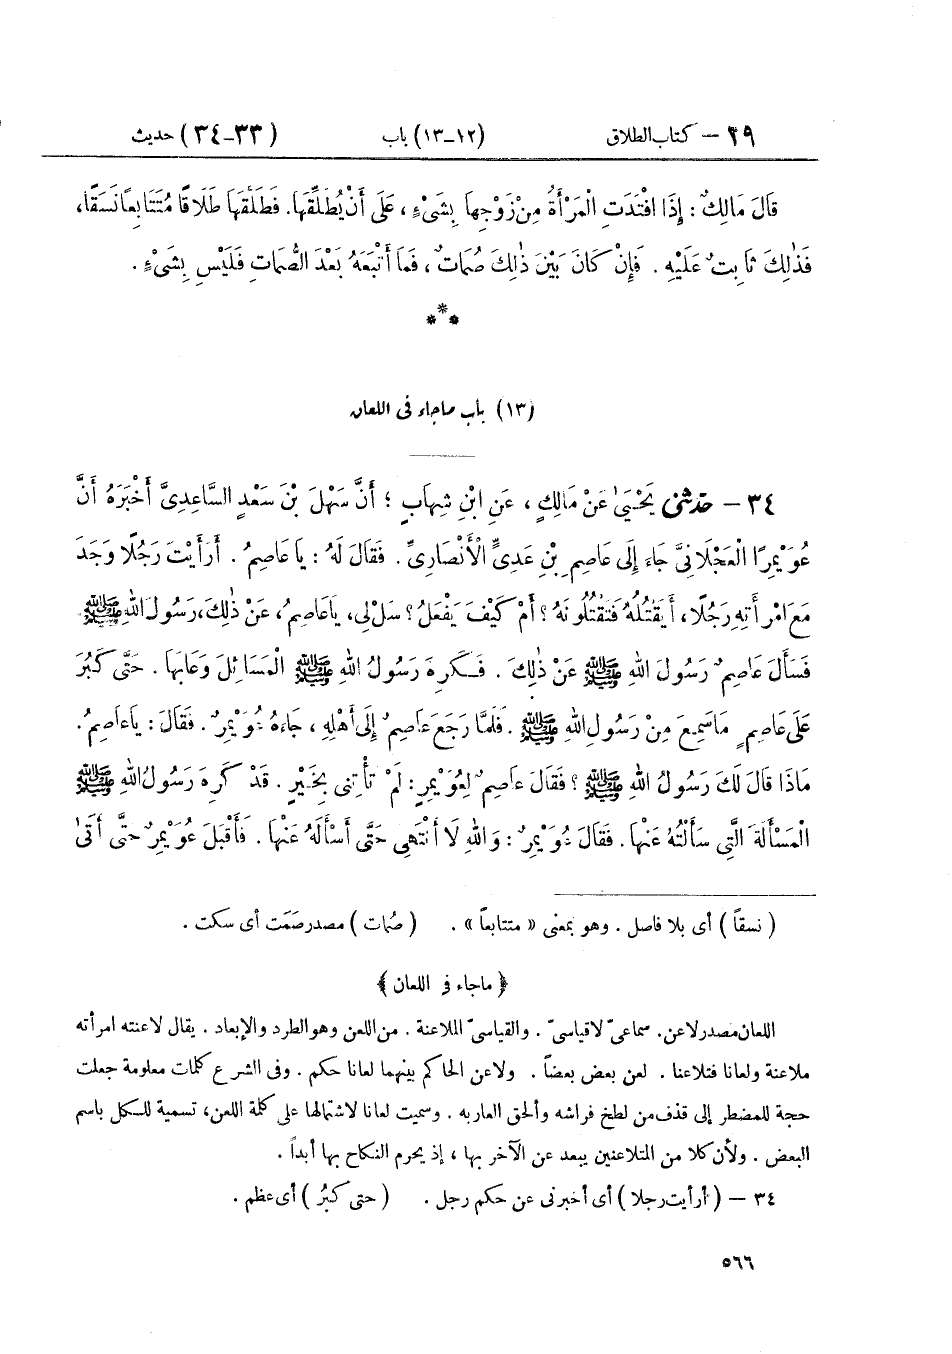 ٢٩ — كتاب الطلاق (١٢-١٣) باب (٣٣-٣٤) حديث
قَالَ مَالِكٌ : إِذَا افْتَدَتِ الْمَرْأَةُ مِنْ زَوْجِهَا بِشَىْءٍ ، عَلَى أَنْ يُطَلِّقَهَا. فَطَلَّقَهَا طَلَاقًا مُتَتَابِعاً نَسَقًا،
فَذٰلِكَ ثَابِتٌ عَلَيْهِ . فَإِنْ كَانَ بَيْنَ ذٰلِكَ صُمَاتٌ ، فَمَا أَتْبَعَهُ بَعْدَ الصُّمَاتِ فَلَيْسِ بِشَىْءٍ .
***
(١٣) باب ماجاء فى اللعان
٣٤ — حَدَّثَنِى يَحْيَىٰ عَنْ مَالِكٍ ، عَنِ ابْنِ شِهَابٍ ؛ أَنَّ سَهْلَ بْنَ سَعْدٍ السَّاعِدِىَّ أَخْبَرَهُ أَنَّ
عُوَيْمِرًا الْعَجْلَانِىَّ جَاءَ إِلَى عَاصِمِ بْنِ عَدِىٍّ الْأَنْصَارِىِّ . فَقَالَ لَهُ : يَا عَاصِمُ . أَرَأَيْتَ رَجُلًا وَجَدَ
مَعَ امْرَأَتِهِ رَجُلًا ، أَيَقْتُلُهُ فَتَقْتُلُونَهُ ؟ أَمْ كَيْفَ يَفْعَلُ ؟ سَلْ لِى، يَاعَاصِمُ، عَنْ ذٰلِكَ، رَسُولَ اللهِ ﷺ.
فَسَأَلَ عَاصِمٌ رَسُولَ اللهِ ﷺ عَنْ ذٰلِكَ . فَكَرِهَ رَسُولُ اللهِ ﷺ الْمَسَائِلَ وَعَابَهَا . حَتَّى كَبُرَ
عَلَى عَاصِمٍ مَا سَمِعَ مِنْ رَسُولِ اللهِ ﷺ . فَلَمَّا رَجَعَ عَاصِمٌ إِلَى أَهْلِهِ ، جَاءَهُ عُوَيْمِرٌ . فَقَالَ : يَا عَاصِمُ.
مَاذَا قَالَ لَكَ رَسُولُ اللهِ ﷺ ؟ فَقَالَ عَاصِمٌ لِعُوَيْمِرٍ : لَمْ تَأْتِنِى بِخَيْرٍ . قَدْ كَرِهَ رَسُولُ اللهِ ﷺ
الْمَسْأَلَةَ الَّتِى سَأَلْتُهُ عَنْهَا . فَقَالَ عُوَيْمِرٌ : وَاللهِ لَا أَنْتَهِى حَتَّى أَسْأَلَهُ عَنْهَا . فَأَقْبَلَ عُوَيْمِرٌ حَتَّى أَتَىٰ
( نسقاً ) أى بلا فاصل . وهو بمعنى « متتابعاً » . ( صُمات ) مصدر صَمَت أى سكت .
﴿ ماجاء فى اللعان ﴾
اللعان مصدر لاعن. سماعىّ لا قياسىّ . والقياسىّ الملاعنة . من اللعن وهو الطرد والإبعاد . يقال لاعنته امرأته
ملاعنة ولعانا فتلاعنا . لعن بعض بعضاً . ولاعن الحاكم بينهما لعانا حكم . وفى الشرع كلمات معلومة جعلت
حجة للمضطر إلى قذف من لطخ فراشه وألحق العار به . وسميت لعانا لاشتمالها على كلمة اللعن، تسمية للكل باسم
البعض . ولأن كلا من المتلاعنين يبعد عن الآخر بها ، إذ يحرم النكاح بها أبداً .
٣٤ — ( أرأيت رجلا ) أى أخبرنى عن حكم رجل . ( حتى كبُر ) أى عظم .
٥٦٦